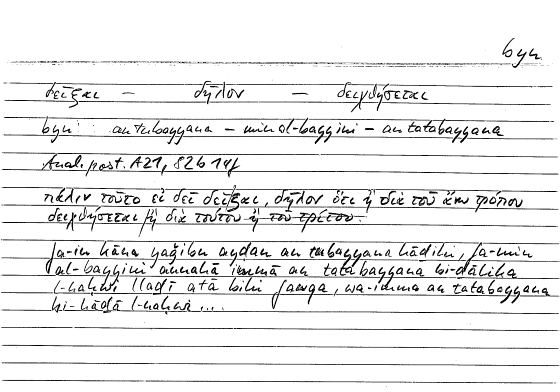 byn
δεῖξαι — δῆλον — δειχθήσεται
byn: an tubayyana – min al-bayyini – an tatabayyana
Anal. post. A21, 82b 14f
πάλιν τοῦτο εἰ δεῖ δεῖξαι, δῆλον ὅτι ἢ διὰ τοῦ ἄνω τρόπου
δειχθήσεται ἢ διὰ τούτου ἢ τοῦ τρίτου.
fa-in kāna yaǧibu ayḍan an tubayyana hādihi, fa-min
al-bayyini annahā immā an tatabayyana bi-dālika
l-naḥwi lladī atā bihi fawqa, wa-imma an tatabayyana
bi-hādā l-naḥwi ...